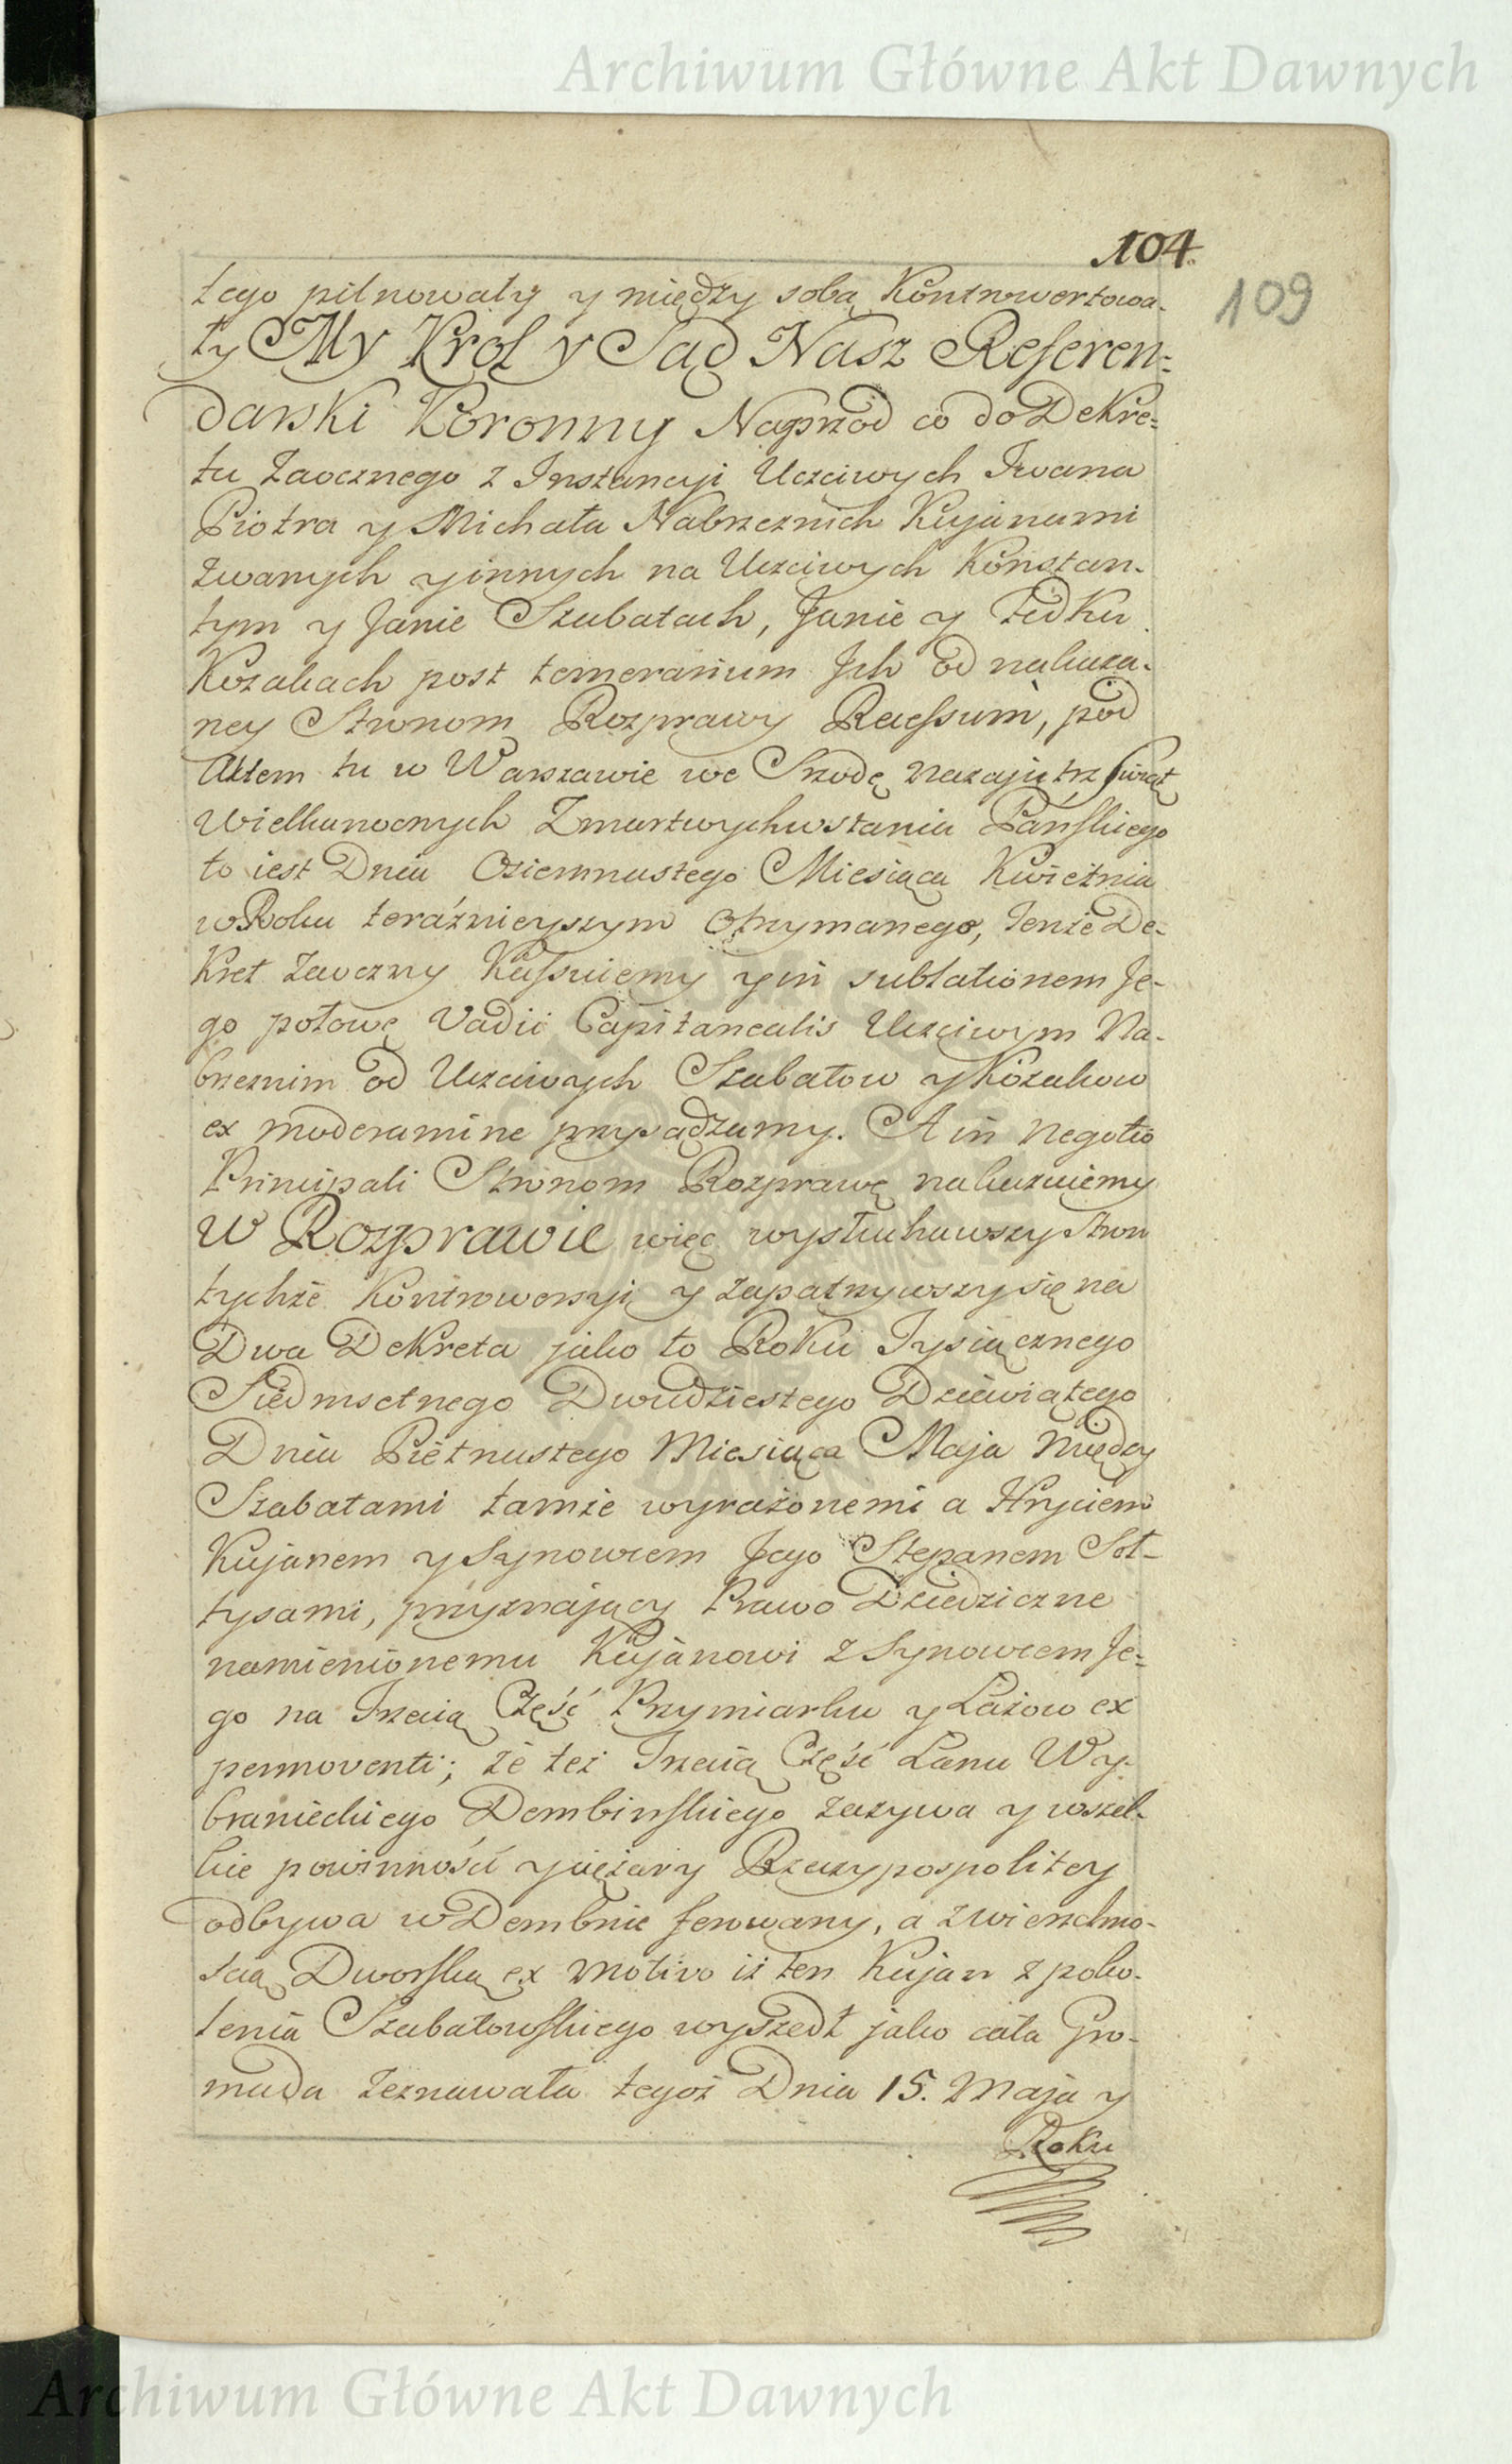 Archiwum Główne Akt Dawnych
104.
109
tego pilnowały y między sobą Kontrowertowa-
ły My Krol y Sąd Nasz Referen=
darski Koronny Naprzod co do Dekre=
tu Zaocznego z Instancyi Uczciwych Iwana
Piotra y Michała Nabrzeznich Kujanami
zwanych y innych na Uczciwych Konstan-
tym y Janie Szubatach, Janie y Fedku
Kozakach post temerarium Ich od nakaza-
ney Stronom Rozprawy Recessum, pod
Aktem tu w Warszawie we Srzodę nazajutrz Swiąt
Wielkanocnych Zmartwychwstania Pańskiego
to iest Dnia Osiemnastego Miesiąca Kwietnia
w Roku teraźnieyszym otrzymanego, tenże De-
kret Zaoczny Kassuiemy y in sublationem Je-
go połowę Vadii Capitanealis Uczciwym Na-
brzeznim od Uczciwych Szabatow y Kozakow
ex moderamine przysądzamy. A in negotio
Principali Stronom Rozprawę nakazuiemy
W Rozprawie więc wysłuchawszy Stron
tychże Kontrowersyi y zapatrzywszy się na
Dwa Dekreta jako to Roku Tysiącznego
Siedmsetnego Dwudziestego Dziewiątego
Dnia Piętnastego Miesiąca Maja między
Szabatami tamże wyrażonemi a Hryciem
Kujanem y Synowcem Jego Stepanem Soł-
tysami, przyznający Prawo Dziedziczne
namienionemu Kujanowi z Synowcem Je=
go na Trzecią Część Przymiarku y Łazow ex
permoventi; że też Trzecią Część Łanu Wy-
branieckiego Dembinskiego zazywa y wszel-
kie powinności y ciężary Rzeczypospolitey
odbywa w Dembnie ferowany, a z wierzchno-
scią Dworską ex motivo iż ten Kujan z poko-
lenia Szabatowskiego wyszedł jako cała Gro-
mada zeznawała tegoż Dnia 15. Maja y
Roku
Archiwum Główne Akt Dawnych